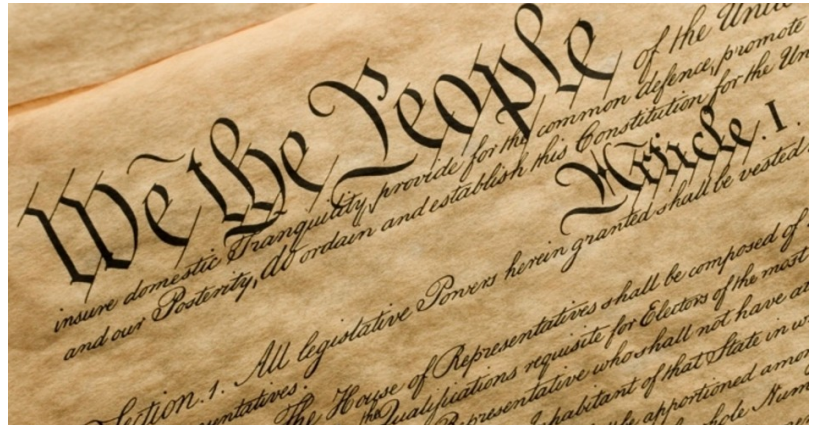 We the People of the Unite
insure domestic Tranquility, provide for the common defence, promote
and our Posterity, do ordain and establish this Constitution for the Un
Article. I.
Section. 1. All legislative Powers herein granted shall be vested
sentatives.
The House of Representatives shall be composed of
the Qualifications requisite for Electors of the most
Representative who shall not have at
Inhabitant of that State in w
be apportioned amon
whole Num